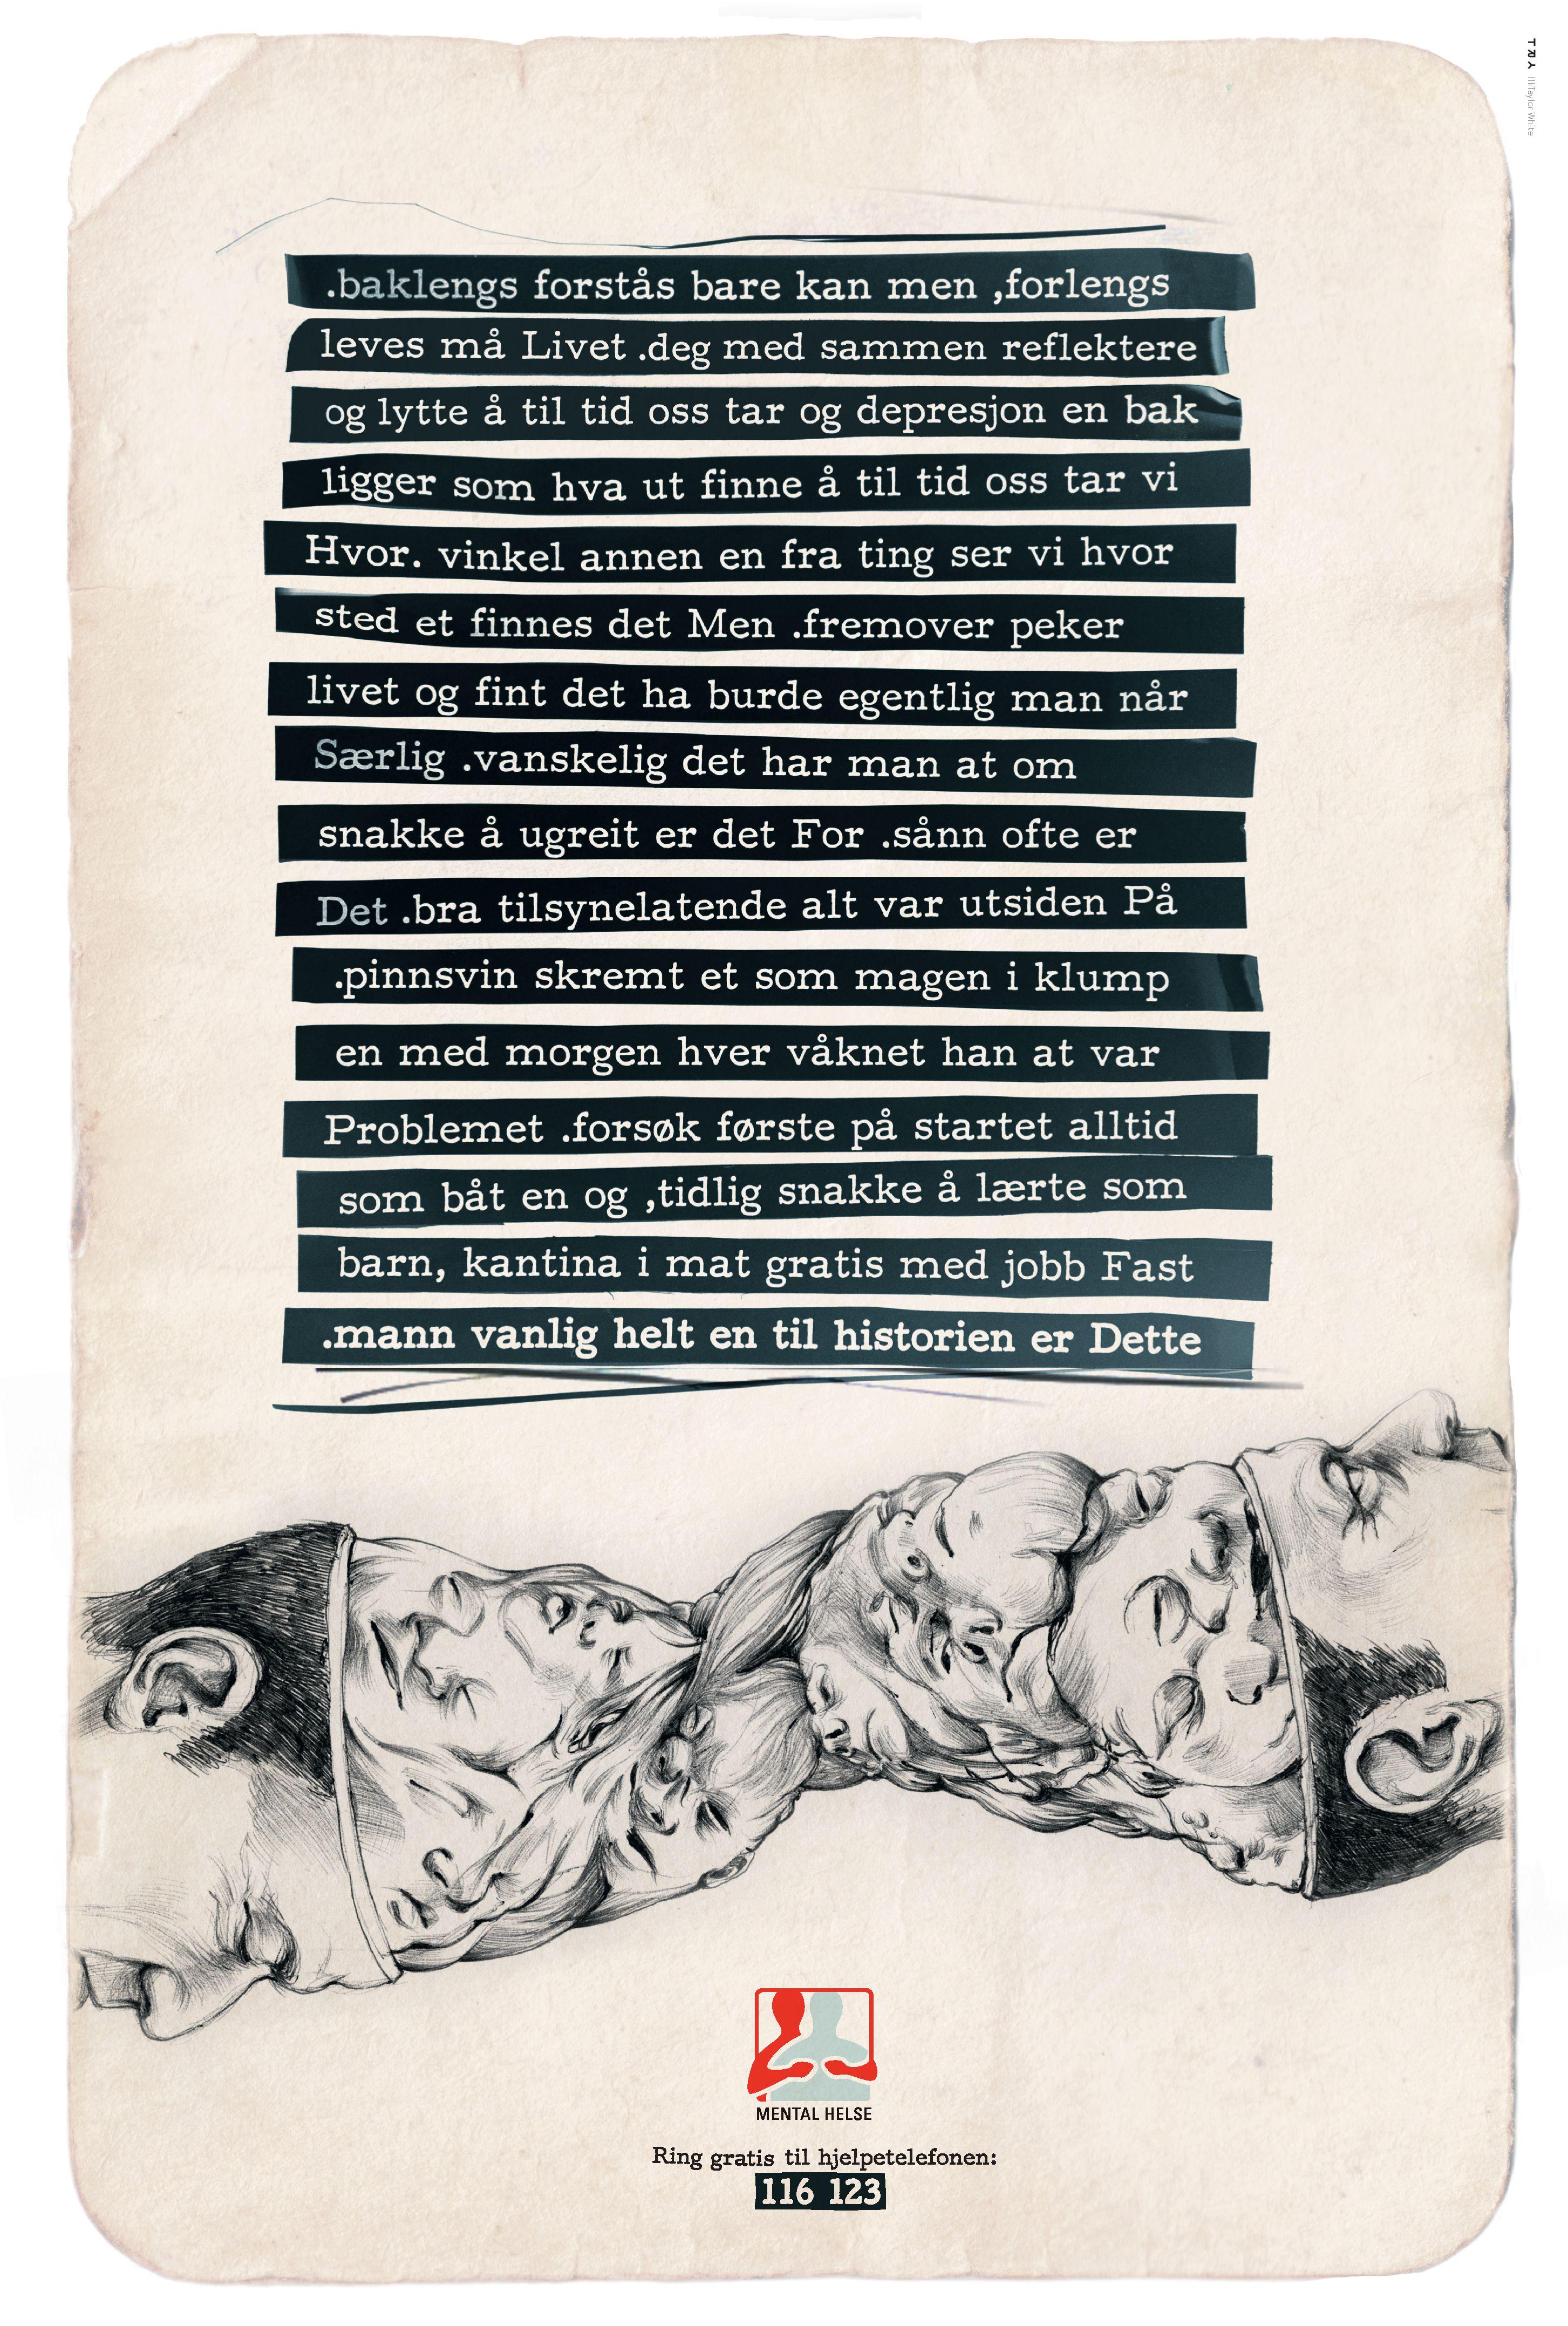 TRY Ill:Taylor White
.baklengs forstås bare kan men ,forlengs
leves må Livet .deg med sammen reflektere
og lytte å til tid oss tar og depresjon en bak
ligger som hva ut finne å til tid oss tar vi
Hvor. vinkel annen en fra ting ser vi hvor
sted et finnes det Men .fremover peker
livet og fint det ha burde egentlig man når
Særlig .vanskelig det har man at om
snakke å ugreit er det For .sånn ofte er
Det .bra tilsynelatende alt var utsiden På
.pinnsvin skremt et som magen i klump
en med morgen hver våknet han at var
Problemet .forsøk første på startet alltid
som båt en og ,tidlig snakke å lærte som
barn, kantina i mat gratis med jobb Fast
.mann vanlig helt en til historien er Dette
MENTAL HELSE
Ring gratis til hjelpetelefonen:
116 123